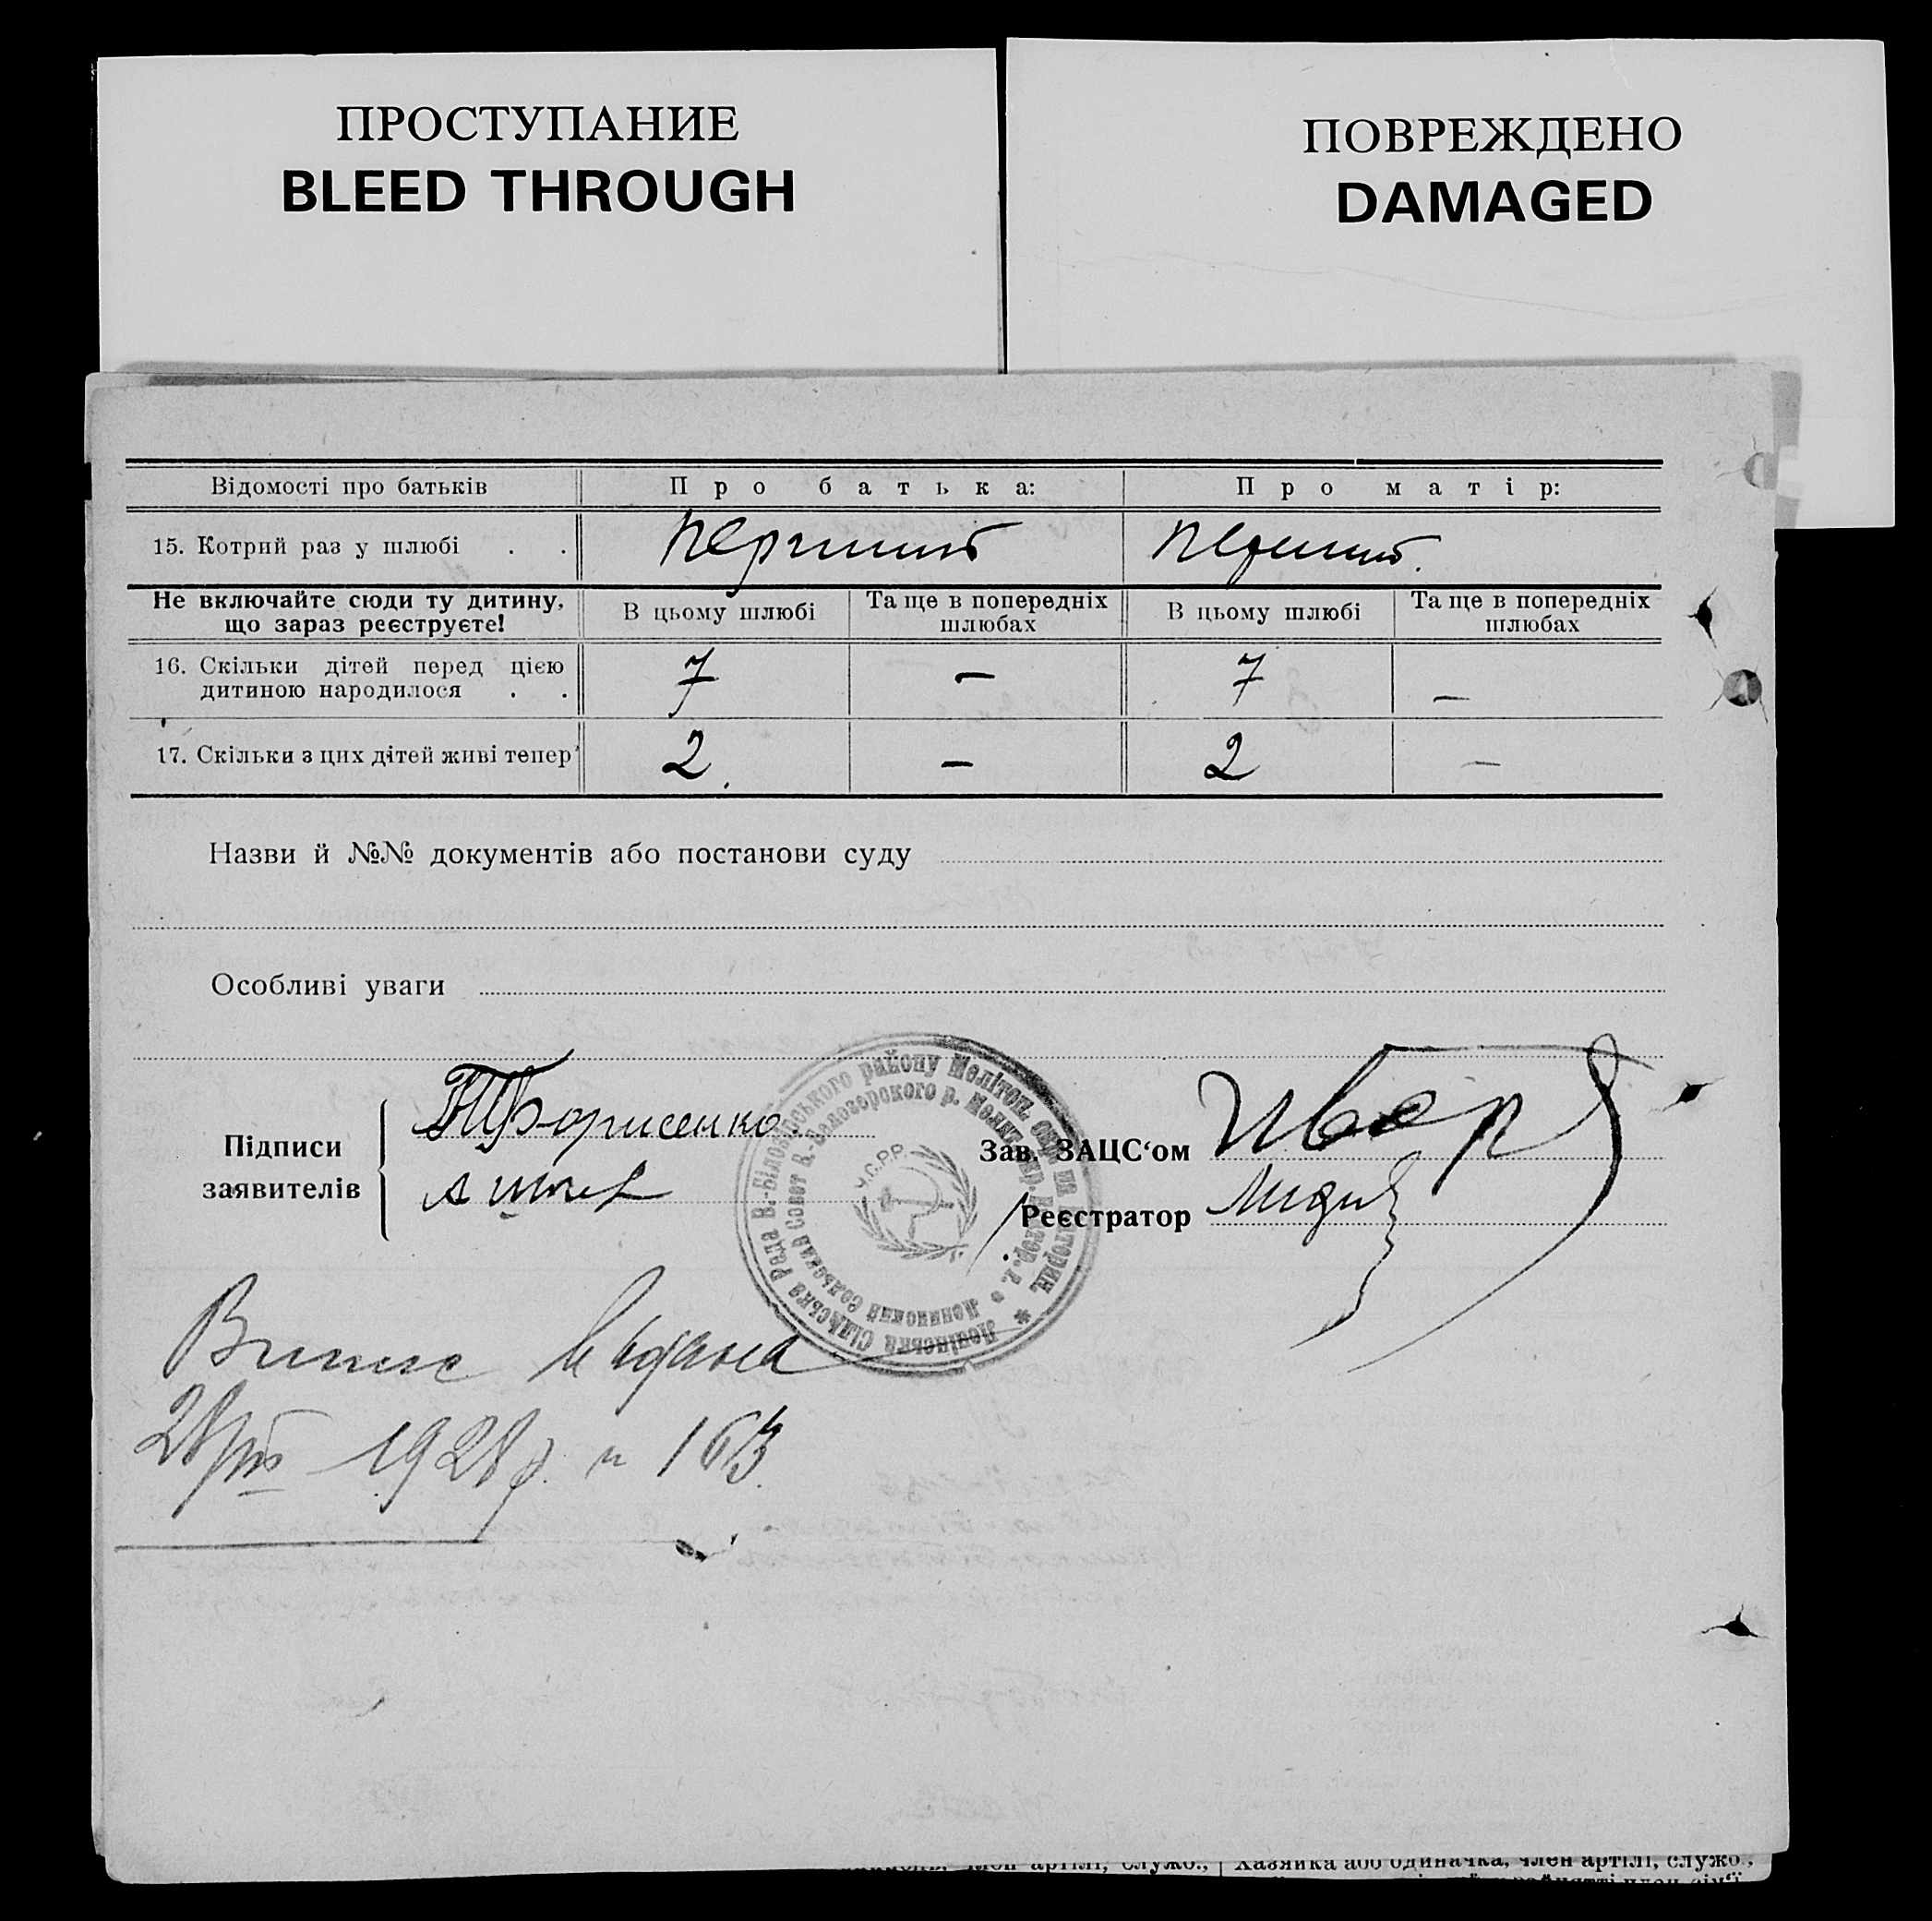 ПРОСТУПАНИЕ
BLEED THROUGH
ПОВРЕЖДЕНО
DAMAGED
Відомості про батьків Про батька: Про матір:
15. Котрий раз у шлюбі . . Перший Перший.
Не включайте сюди ту дитину, що зараз реєструєте! В цьому шлюбі Та ще в попередніх шлюбах В цьому шлюбі Та ще в попередніх шлюбах
16. Скільки дітей перед цією
дитиною народилося . . 7 — 7 —
17. Скільки з цих дітей живі тепер 2 — 2 —
Назви й №№ документів або постанови суду
Особливі уваги
Підписи
заявителів
Борисенко
Зав. ЗАЦС‘ом
Реєстратор
Ленінська Сільська Рада В.-Білозірського району Мелітоп. окр. на Катерин.
Ленинский сельский Совет В.-Белозерского р. Мелит. окр. Екатер. г.
У.С.Р.Р.
Випис видана
28/III 1928 р. № 163
Хазяйка або одиначка, член артілі, служб.,